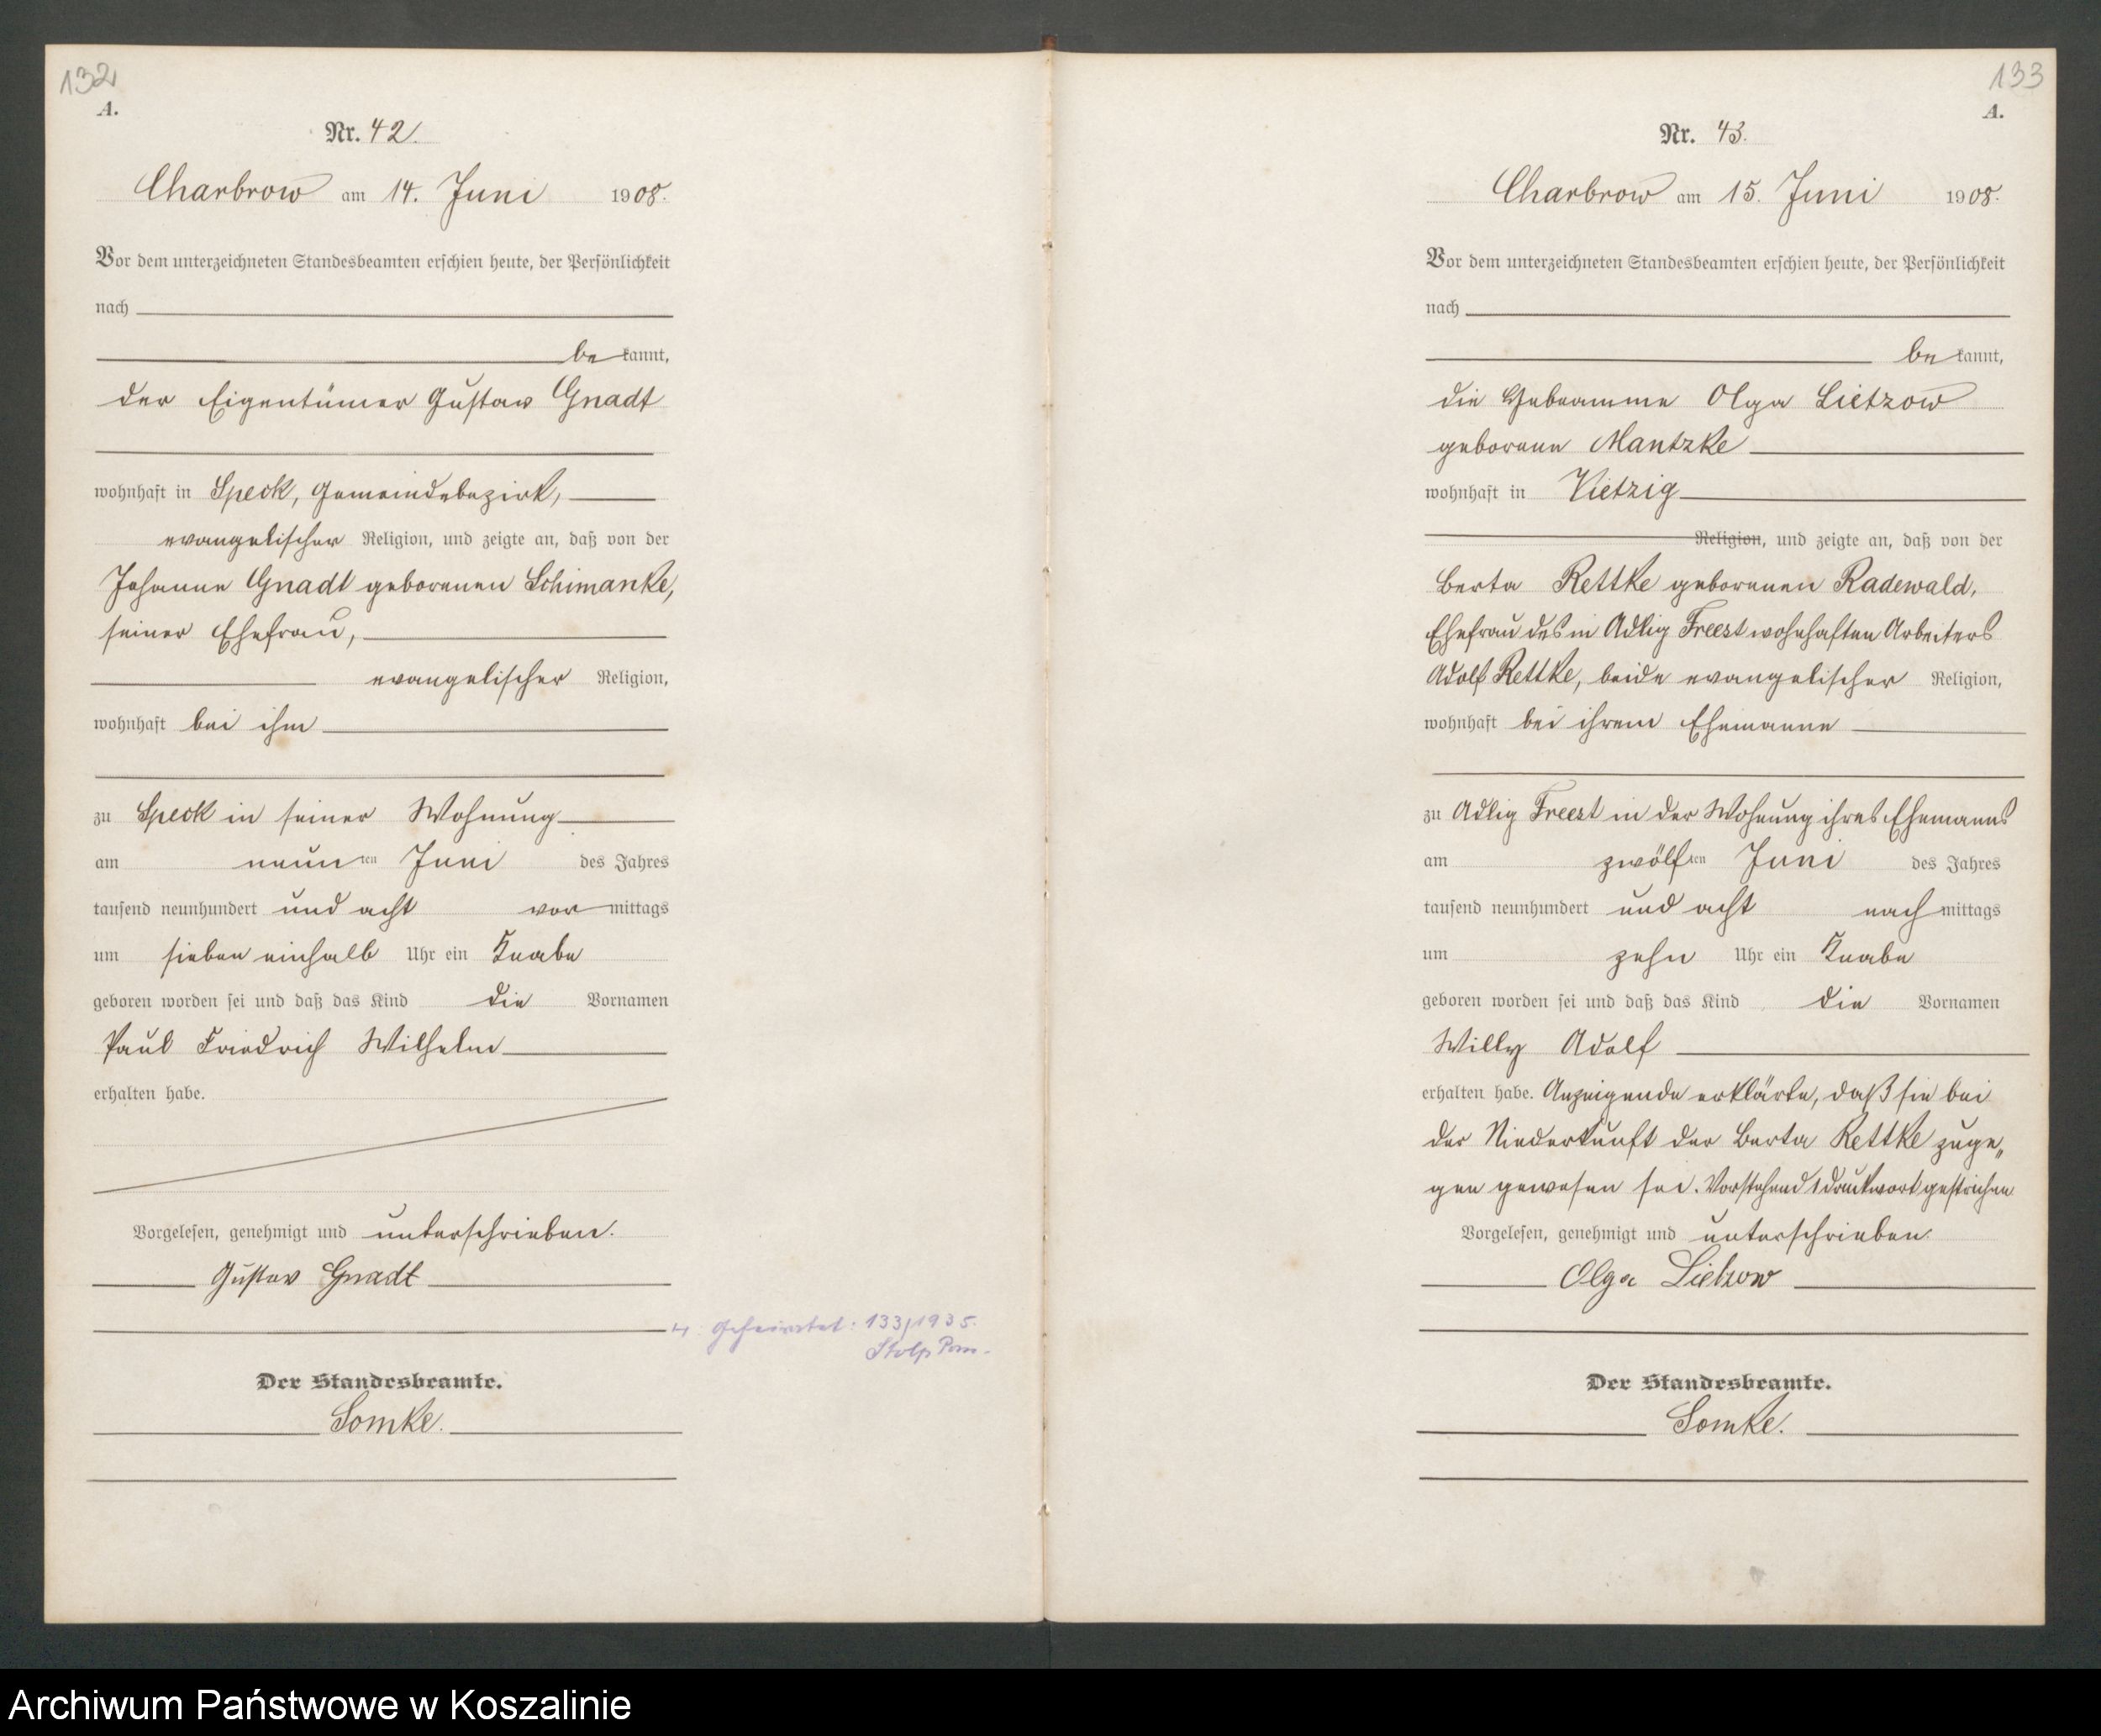 132
A.
Nr. 42.
Charbrow am 14. Juni 1908.
Vor dem unterzeichneten Standesbeamten erschien heute, der Persönlichkeit
nach
be kannt,
der Eigentümer Gustav Gnadt
wohnhaft in Speck, Gemeindebezirk,
evangelischer Religion, und zeigte an, daß von der
Johanne Gnadt geborenen Schimanke,
seiner Ehefrau,
evangelischer Religion,
wohnhaft bei ihm
zu Speck in seiner Wohnung
am neun ten Juni des Jahres
tausend neunhundert und acht vor mittags
um sieben einhalb Uhr ein Knabe
geboren worden sei und daß das Kind die Vornamen
Paul Friedrich Wilhelm
erhalten habe.
Vorgelesen, genehmigt und unterschrieben.
Gustav Gnadt
Geheiratet: 133/1935.
Stolp Pom.
Der Standesbeamte.
Somke.
133
A.
Nr. 43.
Charbrow am 15. Juni 1908.
Vor dem unterzeichneten Standesbeamten erschien heute, der Persönlichkeit
nach
be kannt,
die Hebeamme Olga Lietzow
geborene Mantzke
wohnhaft in Vietzig
Religion, und zeigte an, daß von der
Berta Rettke geborenen Radewald,
Ehefrau des in Adlig Freest wohnhaften Arbeiters
Adolf Rettke, beide evangelischer Religion,
wohnhaft bei ihrem Ehemanne
zu Adlig Freest in der Wohnung ihres Ehemanns
am zwölf ten Juni des Jahres
tausend neunhundert und acht nach mittags
um zehn Uhr ein Knabe
geboren worden sei und daß das Kind die Vornamen
Willy Adolf
erhalten habe. Anzeigende erklärte, daß sie bei
der Niederkunft der Berta Rettke zuge„
gen gewesen sei. Vorstehend 1 Druckwort gestrichen
Vorgelesen, genehmigt und unterschrieben.
Olga Lietzow
Der Standesbeamte.
Somke.
Archiwum Państwowe w Koszalinie